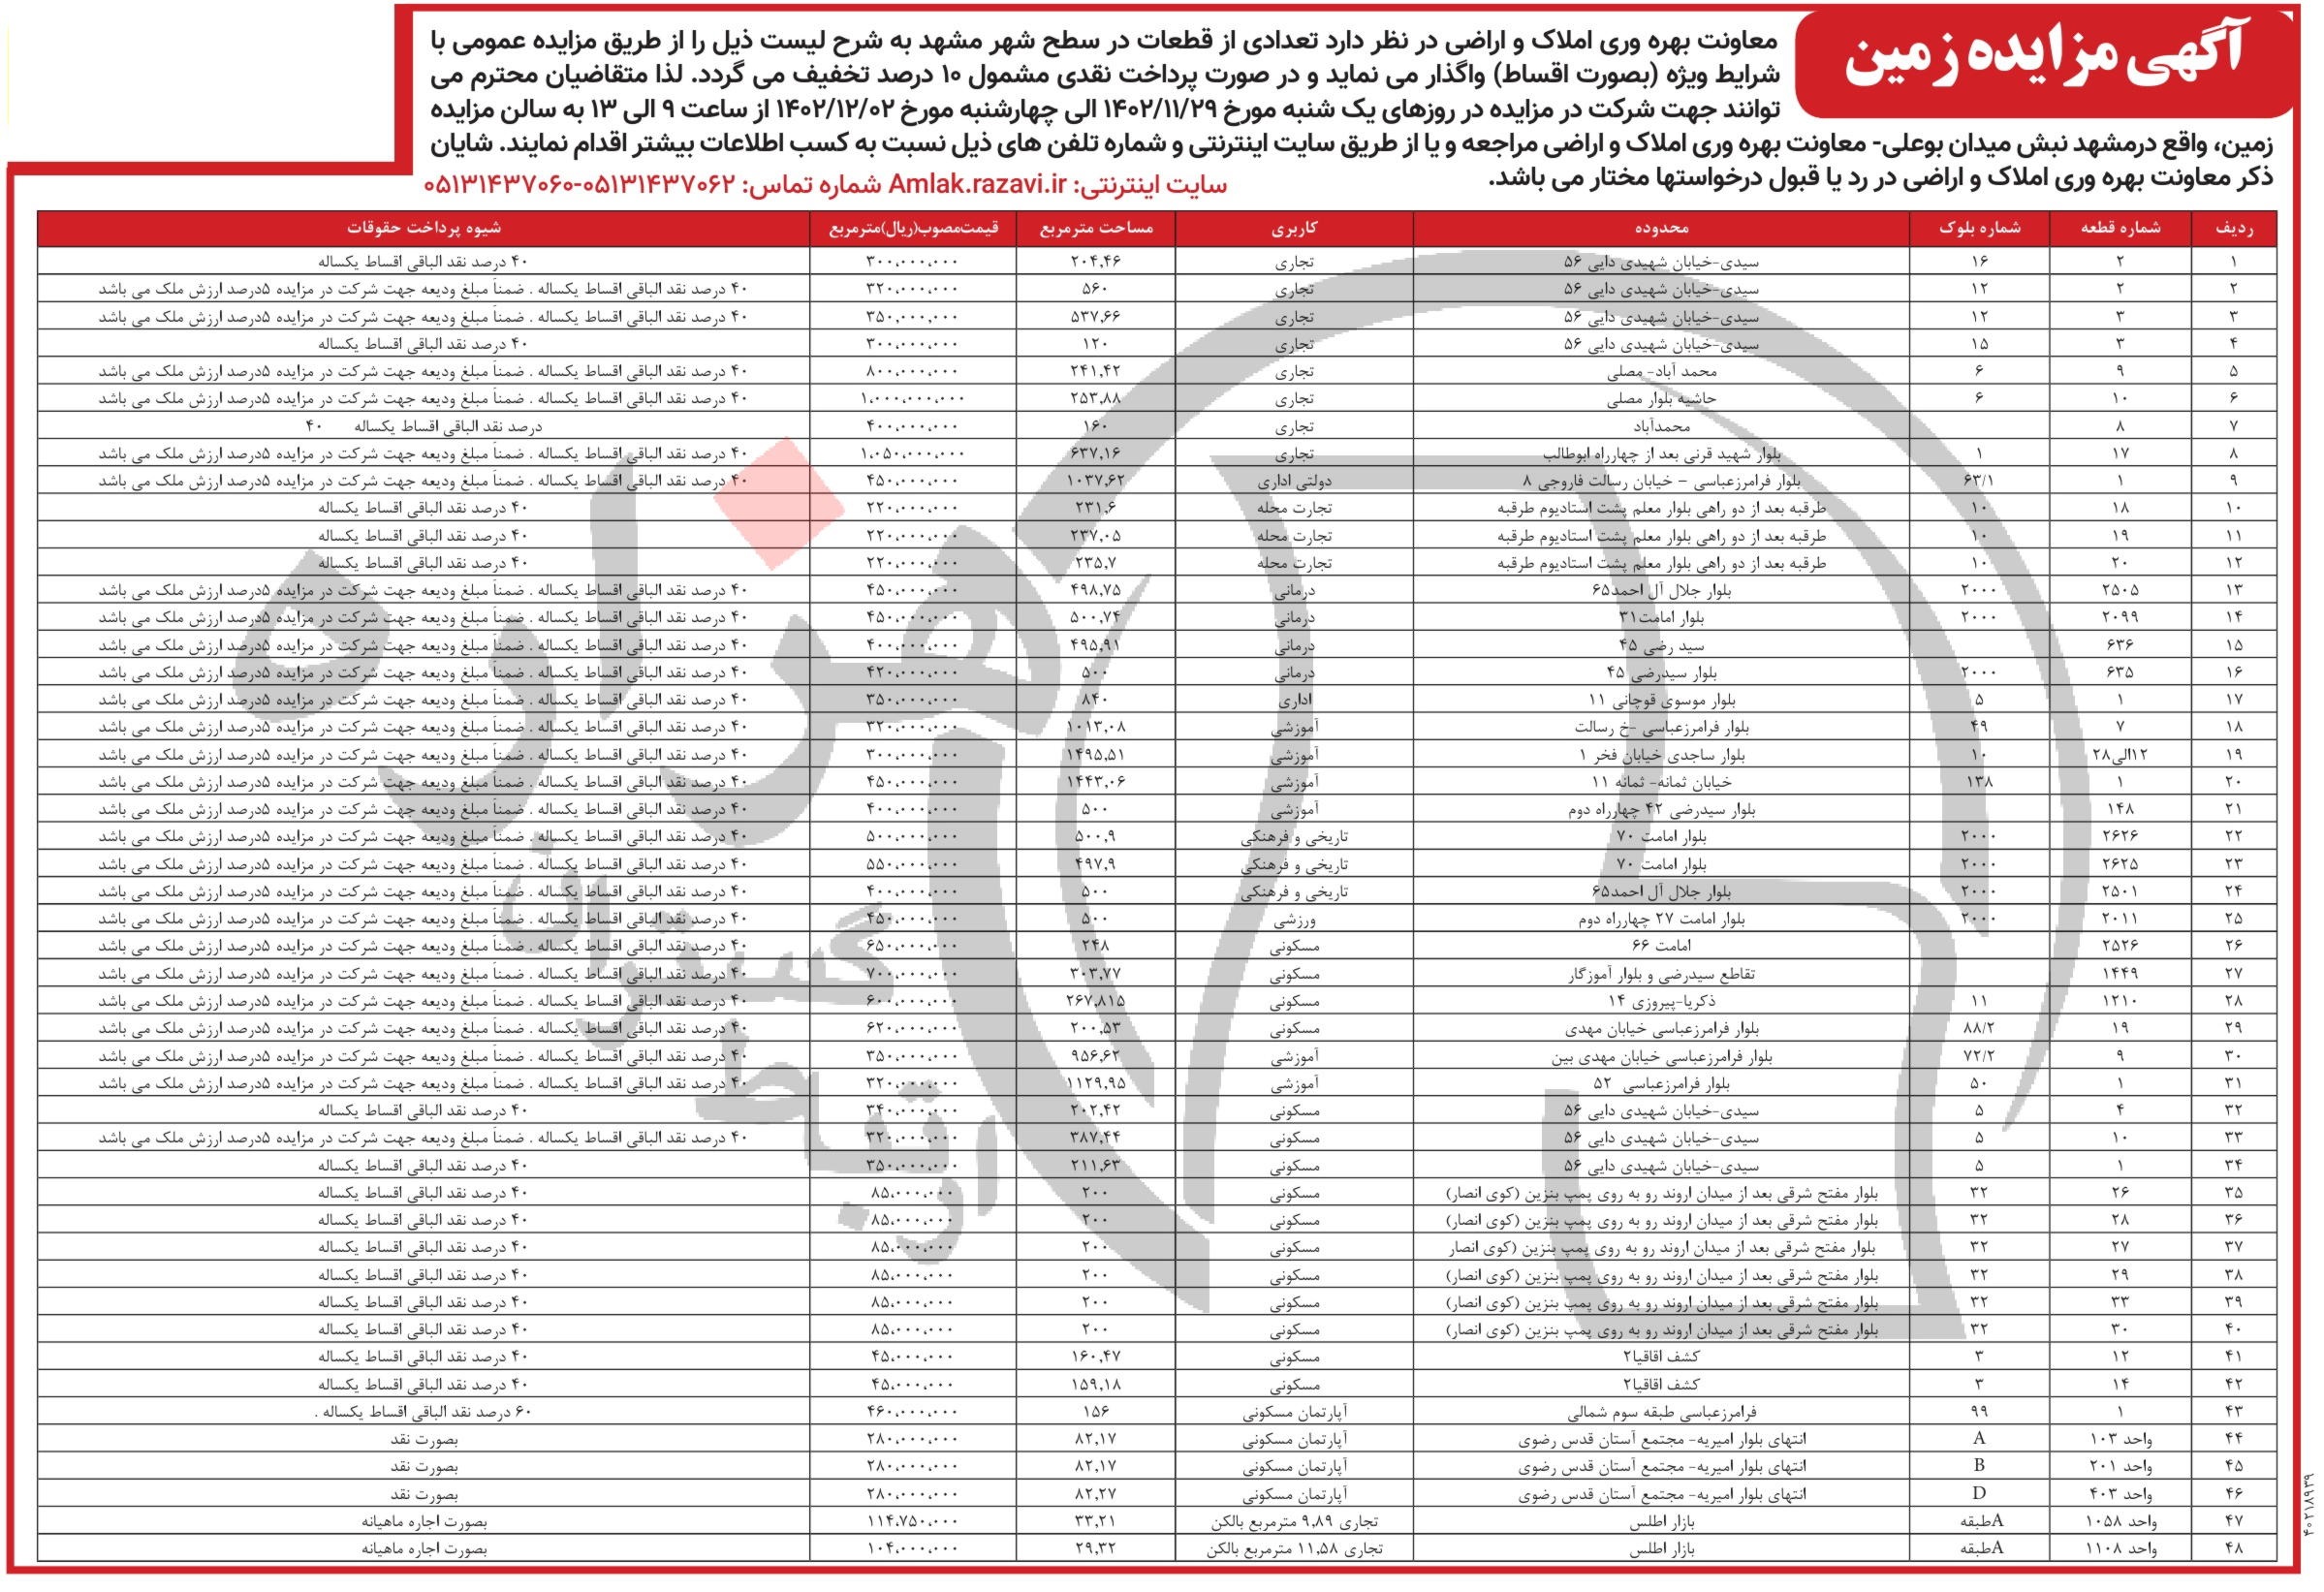 آگهی مزایده زمین
معاونت بهره وری املاک و اراضی در نظر دارد تعدادی از قطعات در سطح شهر مشهد به شرح لیست ذیل را از طریق مزایده عمومی با
شرایط ویژه (بصورت اقساط) واگذار می نماید و در صورت پرداخت نقدی مشمول ۱۰ درصد تخفیف می گردد. لذا متقاضیان محترم می
توانند جهت شرکت در مزایده در روزهای یک شنبه مورخ ۱۴۰۲/۱۱/۲۹ الی چهارشنبه مورخ ۱۴۰۲/۱۲/۰۲ از ساعت ۹ الی ۱۳ به سالن مزایده
زمین، واقع درمشهد نبش میدان بوعلی- معاونت بهره وری املاک و اراضی مراجعه و یا از طریق سایت اینترنتی و شماره تلفن های ذیل نسبت به کسب اطلاعات بیشتر اقدام نمایند. شایان
ذکر معاونت بهره وری املاک و اراضی در رد یا قبول درخواستها مختار می باشد. سایت اینترنتی: Amlak.razavi.ir شماره تماس: ۰۵۱۳۱۴۳۷۰۶۲-۰۵۱۳۱۴۳۷۰۶۰
ردیف شماره قطعه شماره بلوک محدوده کاربری مساحت مترمربع قیمت‌مصوب(ریال)مترمربع شیوه پرداخت حقوقات
۱ ۲ ۱۶ سیدی-خیابان شهیدی دایی ۵۶ تجاری ۲۰۴,۴۶ ۳۰۰,۰۰۰,۰۰۰ ۴۰ درصد نقد الباقی اقساط یکساله
۲ ۲ ۱۲ سیدی-خیابان شهیدی دایی ۵۶ تجاری ۵۶۰ ۳۲۰,۰۰۰,۰۰۰ ۴۰ درصد نقد الباقی اقساط یکساله . ضمناً مبلغ ودیعه جهت شرکت در مزایده ۵درصد ارزش ملک می باشد
۳ ۳ ۱۲ سیدی-خیابان شهیدی دایی ۵۶ تجاری ۵۳۷,۶۶ ۳۵۰,۰۰۰,۰۰۰ ۴۰ درصد نقد الباقی اقساط یکساله . ضمناً مبلغ ودیعه جهت شرکت در مزایده ۵درصد ارزش ملک می باشد
۴ ۳ ۱۵ سیدی-خیابان شهیدی دایی ۵۶ تجاری ۱۲۰ ۳۰۰,۰۰۰,۰۰۰ ۴۰ درصد نقد الباقی اقساط یکساله
۵ ۹ ۶ محمد آباد- مصلی تجاری ۲۴۱,۴۲ ۸۰۰,۰۰۰,۰۰۰ ۴۰ درصد نقد الباقی اقساط یکساله . ضمناً مبلغ ودیعه جهت شرکت در مزایده ۵درصد ارزش ملک می باشد
۶ ۱۰ ۶ حاشیه بلوار مصلی تجاری ۲۵۳,۸۸ ۱,۰۰۰,۰۰۰,۰۰۰ ۴۰ درصد نقد الباقی اقساط یکساله . ضمناً مبلغ ودیعه جهت شرکت در مزایده ۵درصد ارزش ملک می باشد
۷ ۸ محمدآباد تجاری ۱۶۰ ۴۰۰,۰۰۰,۰۰۰ درصد نقد الباقی اقساط یکساله ۴۰
۸ ۱۷ ۱ بلوار شهید قرنی بعد از چهارراه ابوطالب تجاری ۶۳۷,۱۶ ۱,۰۵۰,۰۰۰,۰۰۰ ۴۰ درصد نقد الباقی اقساط یکساله . ضمناً مبلغ ودیعه جهت شرکت در مزایده ۵درصد ارزش ملک می باشد
۹ ۱ ۶۳/۱ بلوار فرامرزعباسی – خیابان رسالت فاروجی ۸ دولتی اداری ۱۰۳۷,۶۲ ۴۵۰,۰۰۰,۰۰۰ ۴۰ درصد نقد الباقی اقساط یکساله . ضمناً مبلغ ودیعه جهت شرکت در مزایده ۵درصد ارزش ملک می باشد
۱۰ ۱۸ ۱۰ طرقبه بعد از دو راهی بلوار معلم پشت استادیوم طرقبه تجارت محله ۲۳۱,۶ ۲۲۰,۰۰۰,۰۰۰ ۴۰ درصد نقد الباقی اقساط یکساله
۱۱ ۱۹ ۱۰ طرقبه بعد از دو راهی بلوار معلم پشت استادیوم طرقبه تجارت محله ۲۳۷,۰۵ ۲۲۰,۰۰۰,۰۰۰ ۴۰ درصد نقد الباقی اقساط یکساله
۱۲ ۲۰ ۱۰ طرقبه بعد از دو راهی بلوار معلم پشت استادیوم طرقبه تجارت محله ۲۳۵,۷ ۲۲۰,۰۰۰,۰۰۰ ۴۰ درصد نقد الباقی اقساط یکساله
۱۳ ۲۵۰۵ ۲۰۰۰ بلوار جلال آل احمد۶۵ درمانی ۴۹۸,۷۵ ۴۵۰,۰۰۰,۰۰۰ ۴۰ درصد نقد الباقی اقساط یکساله . ضمناً مبلغ ودیعه جهت شرکت در مزایده ۵درصد ارزش ملک می باشد
۱۴ ۲۰۹۹ ۲۰۰۰ بلوار امامت۳۱ درمانی ۵۰۰,۷۴ ۴۵۰,۰۰۰,۰۰۰ ۴۰ درصد نقد الباقی اقساط یکساله . ضمناً مبلغ ودیعه جهت شرکت در مزایده ۵درصد ارزش ملک می باشد
۱۵ ۶۳۶ سید رضی ۴۵ درمانی ۴۹۵,۹۱ ۴۰۰,۰۰۰,۰۰۰ ۴۰ درصد نقد الباقی اقساط یکساله . ضمناً مبلغ ودیعه جهت شرکت در مزایده ۵درصد ارزش ملک می باشد
۱۶ ۶۳۵ ۲۰۰۰ بلوار سیدرضی ۴۵ درمانی ۵۰۰ ۴۲۰,۰۰۰,۰۰۰ ۴۰ درصد نقد الباقی اقساط یکساله . ضمناً مبلغ ودیعه جهت شرکت در مزایده ۵درصد ارزش ملک می باشد
۱۷ ۱ ۵ بلوار موسوی قوچانی ۱۱ اداری ۸۴۰ ۳۵۰,۰۰۰,۰۰۰ ۴۰ درصد نقد الباقی اقساط یکساله . ضمناً مبلغ ودیعه جهت شرکت در مزایده ۵درصد ارزش ملک می باشد
۱۸ ۷ ۴۹ بلوار فرامرزعباسی -خ رسالت آموزشی ۱۰۱۳,۰۸ ۳۲۰,۰۰۰,۰۰۰ ۴۰ درصد نقد الباقی اقساط یکساله . ضمناً مبلغ ودیعه جهت شرکت در مزایده ۵درصد ارزش ملک می باشد
۱۹ ۱۲الی۲۸ ۱۰ بلوار ساجدی خیابان فخر ۱ آموزشی ۱۴۹۵,۵۱ ۳۰۰,۰۰۰,۰۰۰ ۴۰ درصد نقد الباقی اقساط یکساله . ضمناً مبلغ ودیعه جهت شرکت در مزایده ۵درصد ارزش ملک می باشد
۲۰ ۱ ۱۳۸ خیابان ثمانه- ثمانه ۱۱ آموزشی ۱۴۴۳,۰۶ ۴۵۰,۰۰۰,۰۰۰ ۴۰ درصد نقد الباقی اقساط یکساله . ضمناً مبلغ ودیعه جهت شرکت در مزایده ۵درصد ارزش ملک می باشد
۲۱ ۱۴۸ بلوار سیدرضی ۴۲ چهارراه دوم آموزشی ۵۰۰ ۴۰۰,۰۰۰,۰۰۰ ۴۰ درصد نقد الباقی اقساط یکساله . ضمناً مبلغ ودیعه جهت شرکت در مزایده ۵درصد ارزش ملک می باشد
۲۲ ۲۶۲۶ ۲۰۰۰ بلوار امامت ۷۰ تاریخی و فرهنگی ۵۰۰,۹ ۵۰۰,۰۰۰,۰۰۰ ۴۰ درصد نقد الباقی اقساط یکساله . ضمناً مبلغ ودیعه جهت شرکت در مزایده ۵درصد ارزش ملک می باشد
۲۳ ۲۶۲۵ ۲۰۰۰ بلوار امامت ۷۰ تاریخی و فرهنگی ۴۹۷,۹ ۵۵۰,۰۰۰,۰۰۰ ۴۰ درصد نقد الباقی اقساط یکساله . ضمناً مبلغ ودیعه جهت شرکت در مزایده ۵درصد ارزش ملک می باشد
۲۴ ۲۵۰۱ ۲۰۰۰ بلوار جلال آل احمد۶۵ تاریخی و فرهنگی ۵۰۰ ۴۰۰,۰۰۰,۰۰۰ ۴۰ درصد نقد الباقی اقساط یکساله . ضمناً مبلغ ودیعه جهت شرکت در مزایده ۵درصد ارزش ملک می باشد
۲۵ ۲۰۱۱ ۲۰۰۰ بلوار امامت ۲۷ چهارراه دوم ورزشی ۵۰۰ ۴۵۰,۰۰۰,۰۰۰ ۴۰ درصد نقد الباقی اقساط یکساله . ضمناً مبلغ ودیعه جهت شرکت در مزایده ۵درصد ارزش ملک می باشد
۲۶ ۲۵۲۶ امامت ۶۶ مسکونی ۲۴۸ ۶۵۰,۰۰۰,۰۰۰ ۴۰ درصد نقد الباقی اقساط یکساله . ضمناً مبلغ ودیعه جهت شرکت در مزایده ۵درصد ارزش ملک می باشد
۲۷ ۱۴۴۹ تقاطع سیدرضی و بلوار آموزگار مسکونی ۳۰۳,۷۷ ۷۰۰,۰۰۰,۰۰۰ ۴۰ درصد نقد الباقی اقساط یکساله . ضمناً مبلغ ودیعه جهت شرکت در مزایده ۵درصد ارزش ملک می باشد
۲۸ ۱۲۱۰ ۱۱ ذکریا-پیروزی ۱۴ مسکونی ۲۶۷,۸۱۵ ۶۰۰,۰۰۰,۰۰۰ ۴۰ درصد نقد الباقی اقساط یکساله . ضمناً مبلغ ودیعه جهت شرکت در مزایده ۵درصد ارزش ملک می باشد
۲۹ ۱۹ ۸۸/۲ بلوار فرامرزعباسی خیابان مهدی مسکونی ۲۰۰,۵۳ ۶۲۰,۰۰۰,۰۰۰ ۴۰ درصد نقد الباقی اقساط یکساله . ضمناً مبلغ ودیعه جهت شرکت در مزایده ۵درصد ارزش ملک می باشد
۳۰ ۹ ۷۲/۲ بلوار فرامرزعباسی خیابان مهدی بین آموزشی ۹۵۶,۶۲ ۳۵۰,۰۰۰,۰۰۰ ۴۰ درصد نقد الباقی اقساط یکساله . ضمناً مبلغ ودیعه جهت شرکت در مزایده ۵درصد ارزش ملک می باشد
۳۱ ۱ ۵۰ بلوار فرامرزعباسی ۵۲ آموزشی ۱۱۲۹,۹۵ ۳۲۰,۰۰۰,۰۰۰ ۴۰ درصد نقد الباقی اقساط یکساله . ضمناً مبلغ ودیعه جهت شرکت در مزایده ۵درصد ارزش ملک می باشد
۳۲ ۴ ۵ سیدی-خیابان شهیدی دایی ۵۶ مسکونی ۲۰۲,۴۲ ۳۴۰,۰۰۰,۰۰۰ ۴۰ درصد نقد الباقی اقساط یکساله
۳۳ ۱۰ ۵ سیدی-خیابان شهیدی دایی ۵۶ مسکونی ۳۸۷,۴۴ ۳۲۰,۰۰۰,۰۰۰ ۴۰ درصد نقد الباقی اقساط یکساله . ضمناً مبلغ ودیعه جهت شرکت در مزایده ۵درصد ارزش ملک می باشد
۳۴ ۱ ۵ سیدی-خیابان شهیدی دایی ۵۶ مسکونی ۲۱۱,۶۳ ۳۵۰,۰۰۰,۰۰۰ ۴۰ درصد نقد الباقی اقساط یکساله
۳۵ ۲۶ ۳۲ بلوار مفتح شرقی بعد از میدان اروند رو به روی پمپ بنزین (کوی انصار) مسکونی ۲۰۰ ۸۵,۰۰۰,۰۰۰ ۴۰ درصد نقد الباقی اقساط یکساله
۳۶ ۲۸ ۳۲ بلوار مفتح شرقی بعد از میدان اروند رو به روی پمپ بنزین (کوی انصار) مسکونی ۲۰۰ ۸۵,۰۰۰,۰۰۰ ۴۰ درصد نقد الباقی اقساط یکساله
۳۷ ۲۷ ۳۲ بلوار مفتح شرقی بعد از میدان اروند رو به روی پمپ بنزین (کوی انصار مسکونی ۲۰۰ ۸۵,۰۰۰,۰۰۰ ۴۰ درصد نقد الباقی اقساط یکساله
۳۸ ۲۹ ۳۲ بلوار مفتح شرقی بعد از میدان اروند رو به روی پمپ بنزین (کوی انصار) مسکونی ۲۰۰ ۸۵,۰۰۰,۰۰۰ ۴۰ درصد نقد الباقی اقساط یکساله
۳۹ ۳۳ ۳۲ بلوار مفتح شرقی بعد از میدان اروند رو به روی پمپ بنزین (کوی انصار) مسکونی ۲۰۰ ۸۵,۰۰۰,۰۰۰ ۴۰ درصد نقد الباقی اقساط یکساله
۴۰ ۳۰ ۳۲ بلوار مفتح شرقی بعد از میدان اروند رو به روی پمپ بنزین (کوی انصار) مسکونی ۲۰۰ ۸۵,۰۰۰,۰۰۰ ۴۰ درصد نقد الباقی اقساط یکساله
۴۱ ۱۲ ۳ کشف اقاقیا۲ مسکونی ۱۶۰,۴۷ ۴۵,۰۰۰,۰۰۰ ۴۰ درصد نقد الباقی اقساط یکساله
۴۲ ۱۴ ۳ کشف اقاقیا۲ مسکونی ۱۵۹,۱۸ ۴۵,۰۰۰,۰۰۰ ۴۰ درصد نقد الباقی اقساط یکساله
۴۳ ۱ ۹۹ فرامرزعباسی طبقه سوم شمالی آپارتمان مسکونی ۱۵۶ ۴۶۰,۰۰۰,۰۰۰ ۶۰ درصد نقد الباقی اقساط یکساله .
۴۴ واحد ۱۰۳ A انتهای بلوار امیریه- مجتمع آستان قدس رضوی آپارتمان مسکونی ۸۲,۱۷ ۲۸۰,۰۰۰,۰۰۰ بصورت نقد
۴۵ واحد ۲۰۱ B انتهای بلوار امیریه- مجتمع آستان قدس رضوی آپارتمان مسکونی ۸۲,۱۷ ۲۸۰,۰۰۰,۰۰۰ بصورت نقد
۴۶ واحد ۴۰۳ D انتهای بلوار امیریه- مجتمع آستان قدس رضوی آپارتمان مسکونی ۸۲,۲۷ ۲۸۰,۰۰۰,۰۰۰ بصورت نقد
۴۷ واحد ۱۰۵۸ Aطبقه بازار اطلس تجاری ۹,۸۹ مترمربع بالکن ۳۳,۲۱ ۱۱۴,۷۵۰,۰۰۰ بصورت اجاره ماهیانه
۴۸ واحد ۱۱۰۸ Aطبقه بازار اطلس تجاری ۱۱,۵۸ مترمربع بالکن ۲۹,۳۲ ۱۰۴,۰۰۰,۰۰۰ بصورت اجاره ماهیانه
۴۰۲۱۸۹۳۹
هزاره
گستران
ارتباط